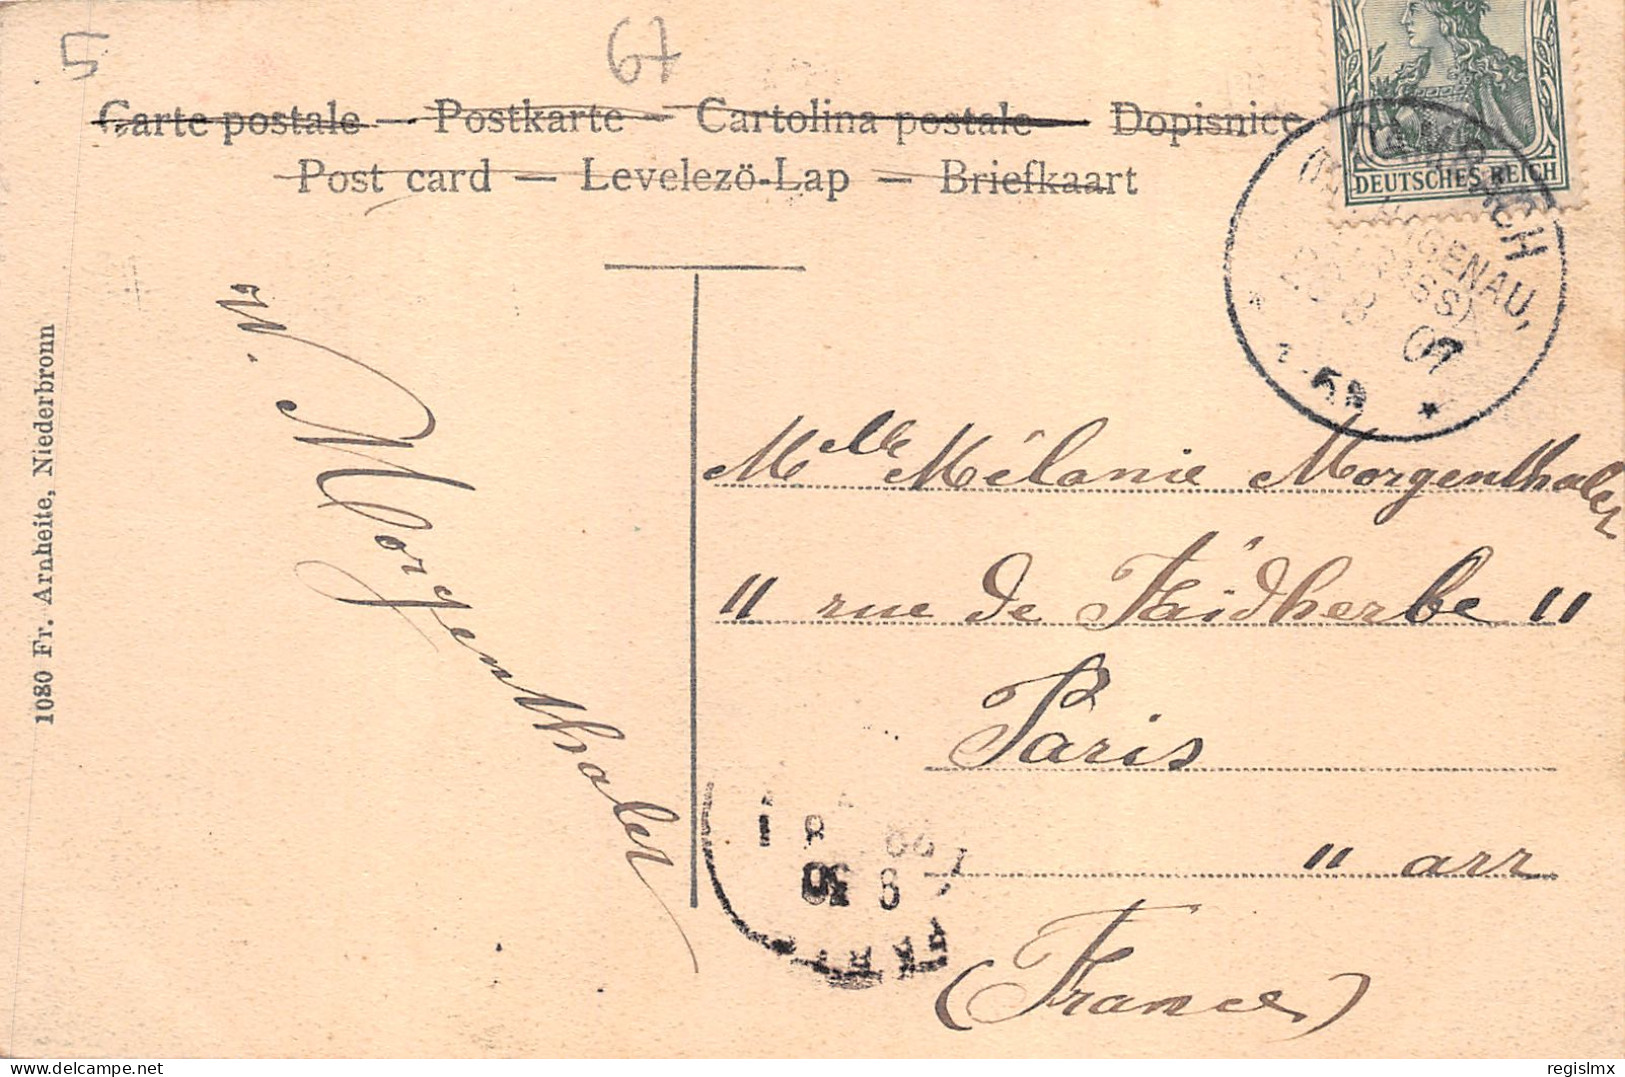 5
67
Carte postale — Postkarte — Cartolina postale — Dopisnice
Post card — Levelezö-Lap — Briefkaart
DEUTSCHES REICH
1080 Fr. Arnheite, Niederbronn
W. Morgenthaler
Mlle Mélanie Morgenthaler
11 rue de Faidherbe 11
Paris
11 arr
(France)
delcampe.net
regislmx